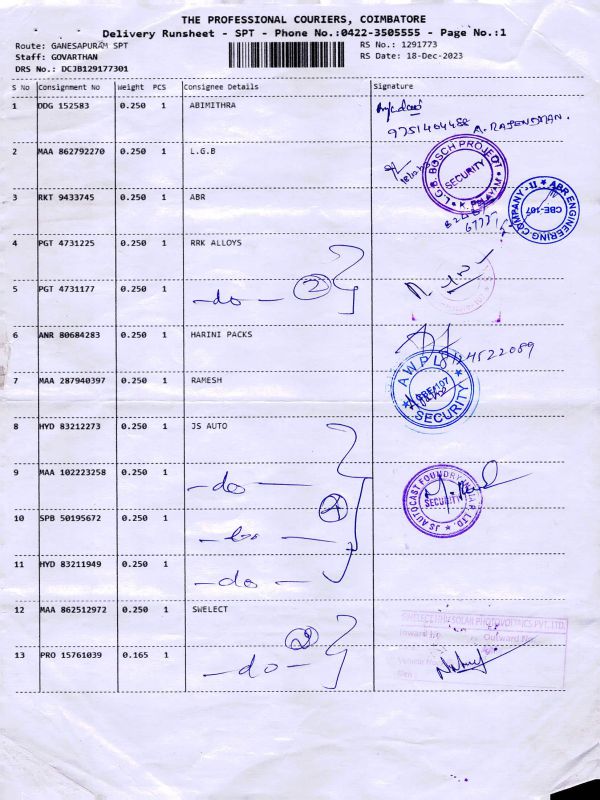 THE PROFESSIONAL COURIERS, COIMBATORE
Delivery Runsheet - SPT - Phone No.:0422-3505555 - Page No.:1
Route: GANESAPURAM SPT
Staff: GOVARTHAN
DRS No.: DCJB129177301
RS No.: 1291773
RS Date: 18-Dec-2023
S No Consignment No Weight PCS Consignee Details Signature
1 DDG 152583 0.250 1 ABIMITHRA
9751404488 A. RAJENDRAN.
2 MAA 862792270 0.250 1 L.G.B
L.G.B. BOSCH PROJECT
SECURITY
3 RKT 9433745 0.250 1 ABR
ABR ENGINEERING COMPANY-II
CBE-107
4 PGT 4731225 0.250 1 RRK ALLOYS
5 PGT 4731177 0.250 1 -do- 2
6 ANR 80684283 0.250 1 HARINI PACKS
7 MAA 287940397 0.250 1 RAMESH
AWPL
CBE-107
SECURITY
8 HYD 83212273 0.250 1 JS AUTO
9 MAA 102223258 0.250 1 -do-
10 SPB 50195672 0.250 1 -do- 4
JS AUTOCAST FOUNDRY LTD.
SECURITY
11 HYD 83211949 0.250 1 -do-
12 MAA 862512972 0.250 1 SWELECT
SWELECT SOLAR PHOTOVOLTAICS PVT. LTD.
Inward No Outward No
13 PRO 15761039 0.165 1 -do- 2